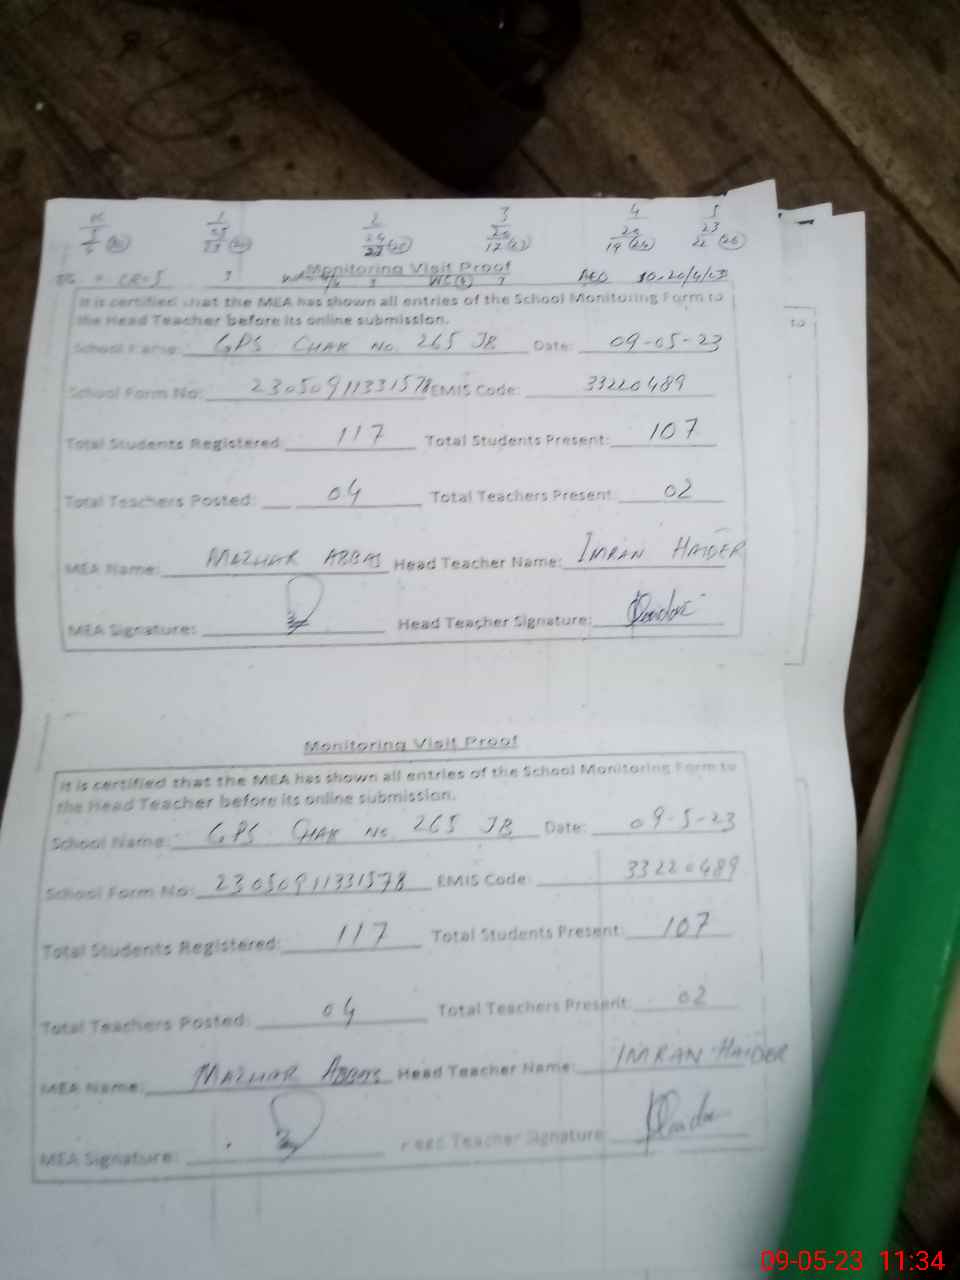 K 1 2 3 4 5
25 23
Monitoring Visit Proof
It is certified that the MEA has shown all entries of the School Monitoring Form to
the Head Teacher before its online submission.
School Name: GPS CHAK NO. 265 JB Date: 09-05-23
School Form No: 23050911331578 EMIS Code: 33220489
Total Students Registered: 117 Total Students Present: 107
Total Teachers Posted: 04 Total Teachers Present: 02
MEA Name: MAZHAR ABBAS Head Teacher Name: IMRAN HAIDER
MEA Signature: Head Teacher Signature:
Monitoring Visit Proof
It is certified that the MEA has shown all entries of the School Monitoring Form to
the Head Teacher before its online submission.
School Name: GPS CHAK NO. 265 JB Date: 09-5-23
School Form No: 23050911331578 EMIS Code: 33220489
Total Students Registered: 117 Total Students Present: 107
Total Teachers Posted: 04 Total Teachers Present: 02
MEA Name: MAZHAR ABBAS Head Teacher Name: IMRAN HAIDER
MEA Signature: Head Teacher Signature
09-05-23 11:34